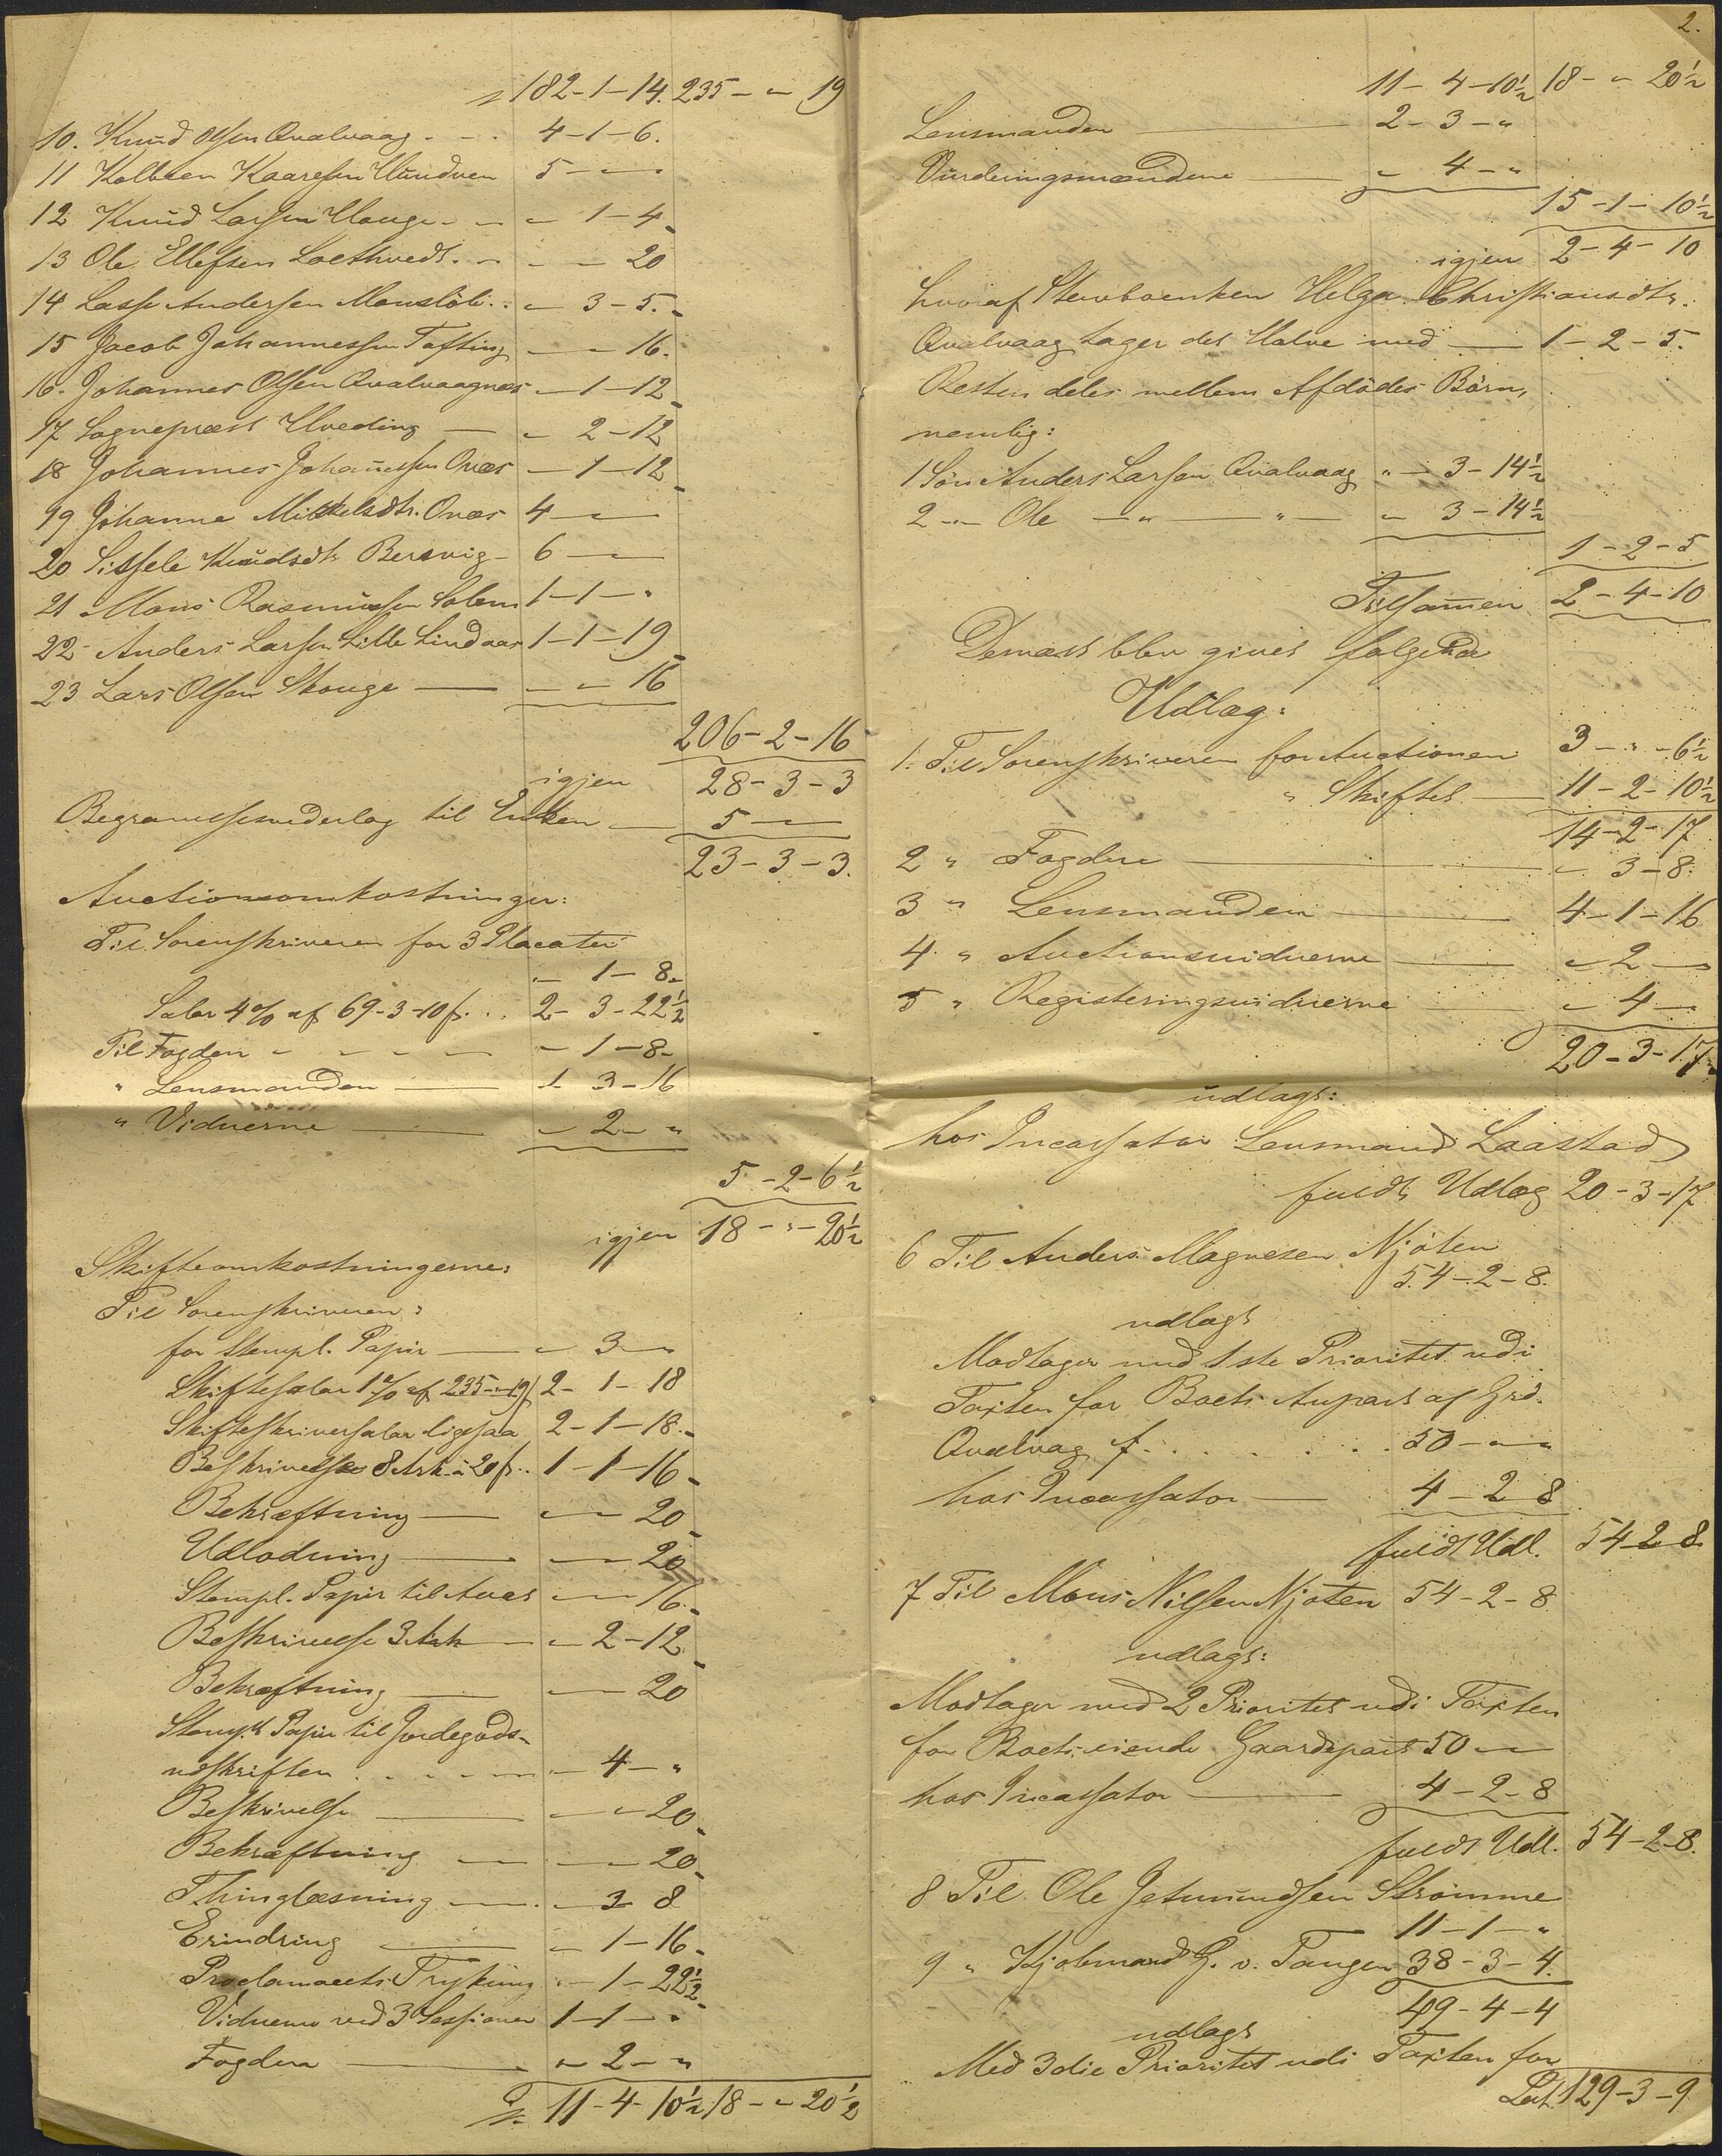 182-1-14. 235- " 19
10. Knud Olsen Qvalvaag - - 4-1-6.
11 Kolbeen Kaaresen Hundven 5 - " -
12 Knud Larsen Hauge - - " 1-4
13 Ole Ellefsen Loethvedt. - - " - 20
14 Lasse Andersen Monslöb. : " 3-5.
15 Jacob Johannessen Tofting - " - 16.
16. Johannes Olsen Qvalvaagnæs - 1-12
17 Sognepræst Hveding - " 2-12
18 Johannes Johanessen Onæs - 1-12
19 Johanne Mikkelsdtr. Onæs 4 - " -
20 Sissele Knudsdtr Bersvig - 6 - " -
21 Mons Rasmussen Solem 1-1- "
22 Anders Larsen Lille Lindaas 1-1-19
23 Lars Olsen Skouge - " - 16
206-2-16
igjen 28-3-3
Begravelsesvederlag til Enken - 5 - " -
23-3-3.
Auctionsomkostninger:
Til Sorenskriveren for 3 Placater
" 1-8
Salar 4% af 69-3-10 f. . . 2-3-22½
Til Fogden - - - - " 1-8
" Lensmanden - 1 3-16
" Vidnerne - " 2- "
5-2-6½
igjen 18- " -20½
Skifteomkostningerne:
Til Sorenskriveren:
for Stempl. Papir - " 3 -
Skiftesalar 1% af 235- " -19 f 2-1-18
Skifteskriversalar ligesaa 2-1-18.
Beskrivelse 8 Ark à 20 f. . 1-1-16
Bekræftning - " - 20
Udlodning - " - 20
Stempl. Papir til Aues - " - 16.
Beskrivelse 3 Ark - " 2-12
Bekræftning - " - 20
Stempl. Papir til Jordegods-
udskriften . . . - - " 4- "
Beskrivelse - " - 20
Bekræftning - " - 20
Thinglæsning - " 3 8
Erindring - " 1-16
Proclamaets Trykning - 1-22½
Vidnerne ved 3 Sessioner 1-1- "
Fogden - " 2- "
11-4-10½ 18- " 20½
2.
11-4-10½ 18- " 20½
Lensmanden - 2-3- "
Vurderingsmændene - " 4- "
15-1-10½
igjen 2-4-10
hvoraf Stervboenken Helga Christiansdtr.
Qvalvaag tager det Halve med - 1-2-5.
Resten deles mellem Afdødes Börn,
nemlig:
1 Sön Anders Larsen Qvalvaag " - 3-14½
2 - " - Ole - " - " - " 3-14½
1-2-5
Tilsamen 2-4-10
Dernæst blev givet følgende
Udlæg:
1. Til Sorenskriveren for Auctionen 3- " -6½
" Skiftet - 11-2-10½
14-2-17
2 " Fogden - " 3-8.
3 " Lensmanden - 4-1-16
4. " Auctionsvidnerne - " 2 -
5 " Registeringsvidnerne " 4 -
20-3-17.
udlagt:
hos Incassator Lensmand Laastad
fuldt Udlæg 20-3-17
6 Til Anders Magnesen Njöten
54-2-8.
udlagt
Modtager med 1ste Prioritet udi
Taxten for Boets Anpart af Grd.
Qvalvag f. . . . . . . . 50- " - "
hos Incassator - 4-2 8
fuldt Udl. 54-2 8
7 Til Mons Nilsen Njöten 54-2-8
udlagt:
Modtager med 2 Prioritet udi Taxten
for Boets eiende Gaardepart 50 - " -
hos Incassator - 4-2-8
fuldt Udl. 54-2-8.
8 Til Ole Jetmundsen Strömme
11-1- "
9 " Kjøbmand G. v. Tangen 38-3-4.
49-4-4
udlagt
Med 3die Prioritet udi Taxten for
Lat. 129-3-9